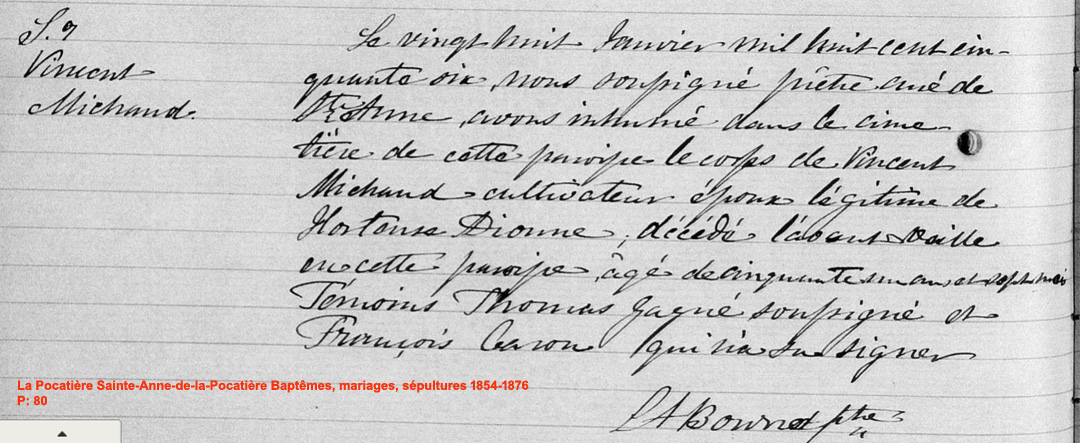 S. 7
Vincent
Michaud.
Le vingt huit Janvier mil huit cent cin-
quante six, nous soussigné prêtre curé de
Ste Anne, avons inhumé dans le cime-
tière de cette paroisse le corps de Vincent
Michaud cultivateur époux légitime de
Hortense Dionne, décédé l'avant veille
en cette paroisse, âgé de cinquante un ans et sept mois
Témoins Thomas Gagné soussigné et
François Caron qui n'a su signer
La Pocatière Sainte-Anne-de-la-Pocatière Baptêmes, mariages, sépultures 1854-1876
P: 80
ptre